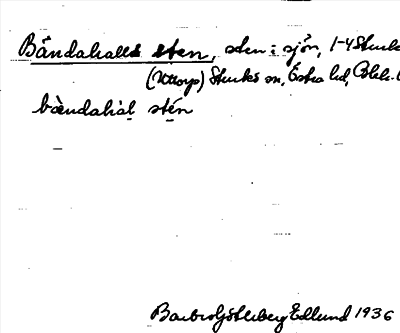 Bändahalls sten, sten i sjön, 1-4 Sturkö
(Uttorp) Sturkö sn, Östra hd, Blek.
bàendahàl stén
Barbro Göthberg Edlund 1936